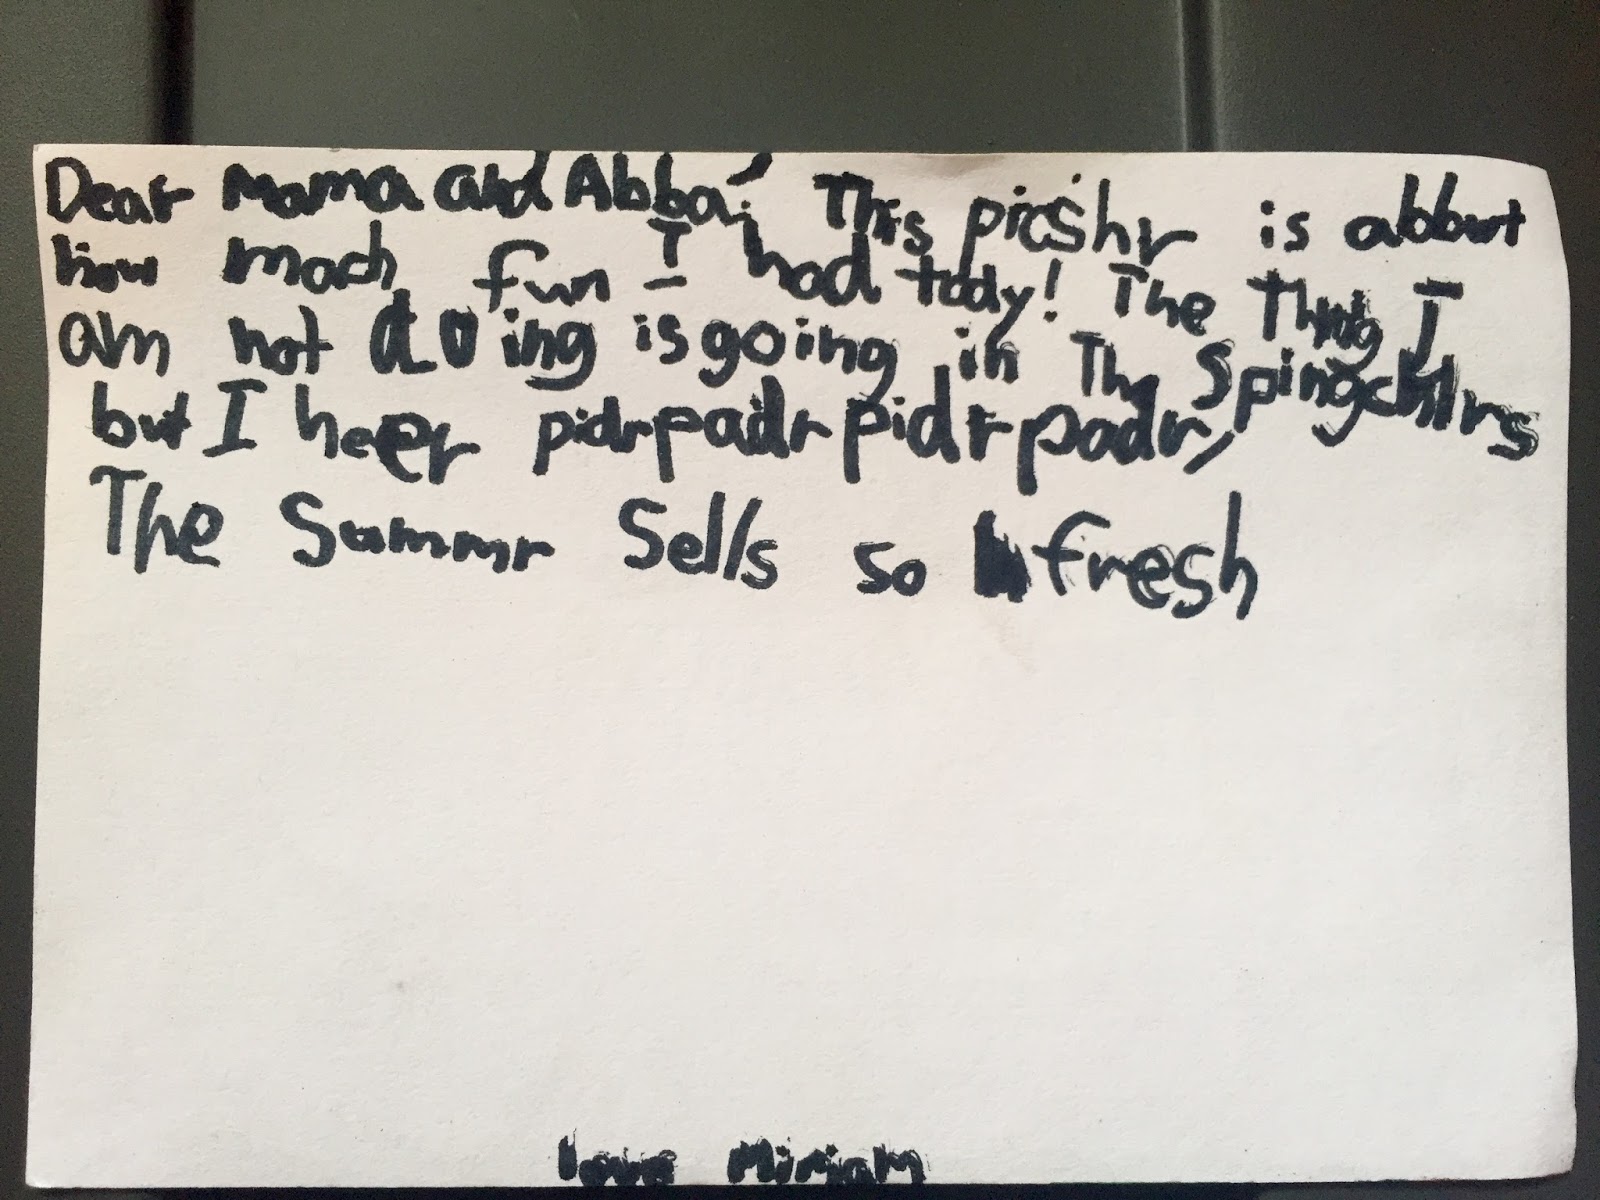 Dear Mama and Abba! This picshr is abbout
how mach fun I had tody! The Thing I
am not doing is going in The Spingchlrs
but I heer pidrpadrpidrpadr,
The Summr Sells so fresh
love Miriam